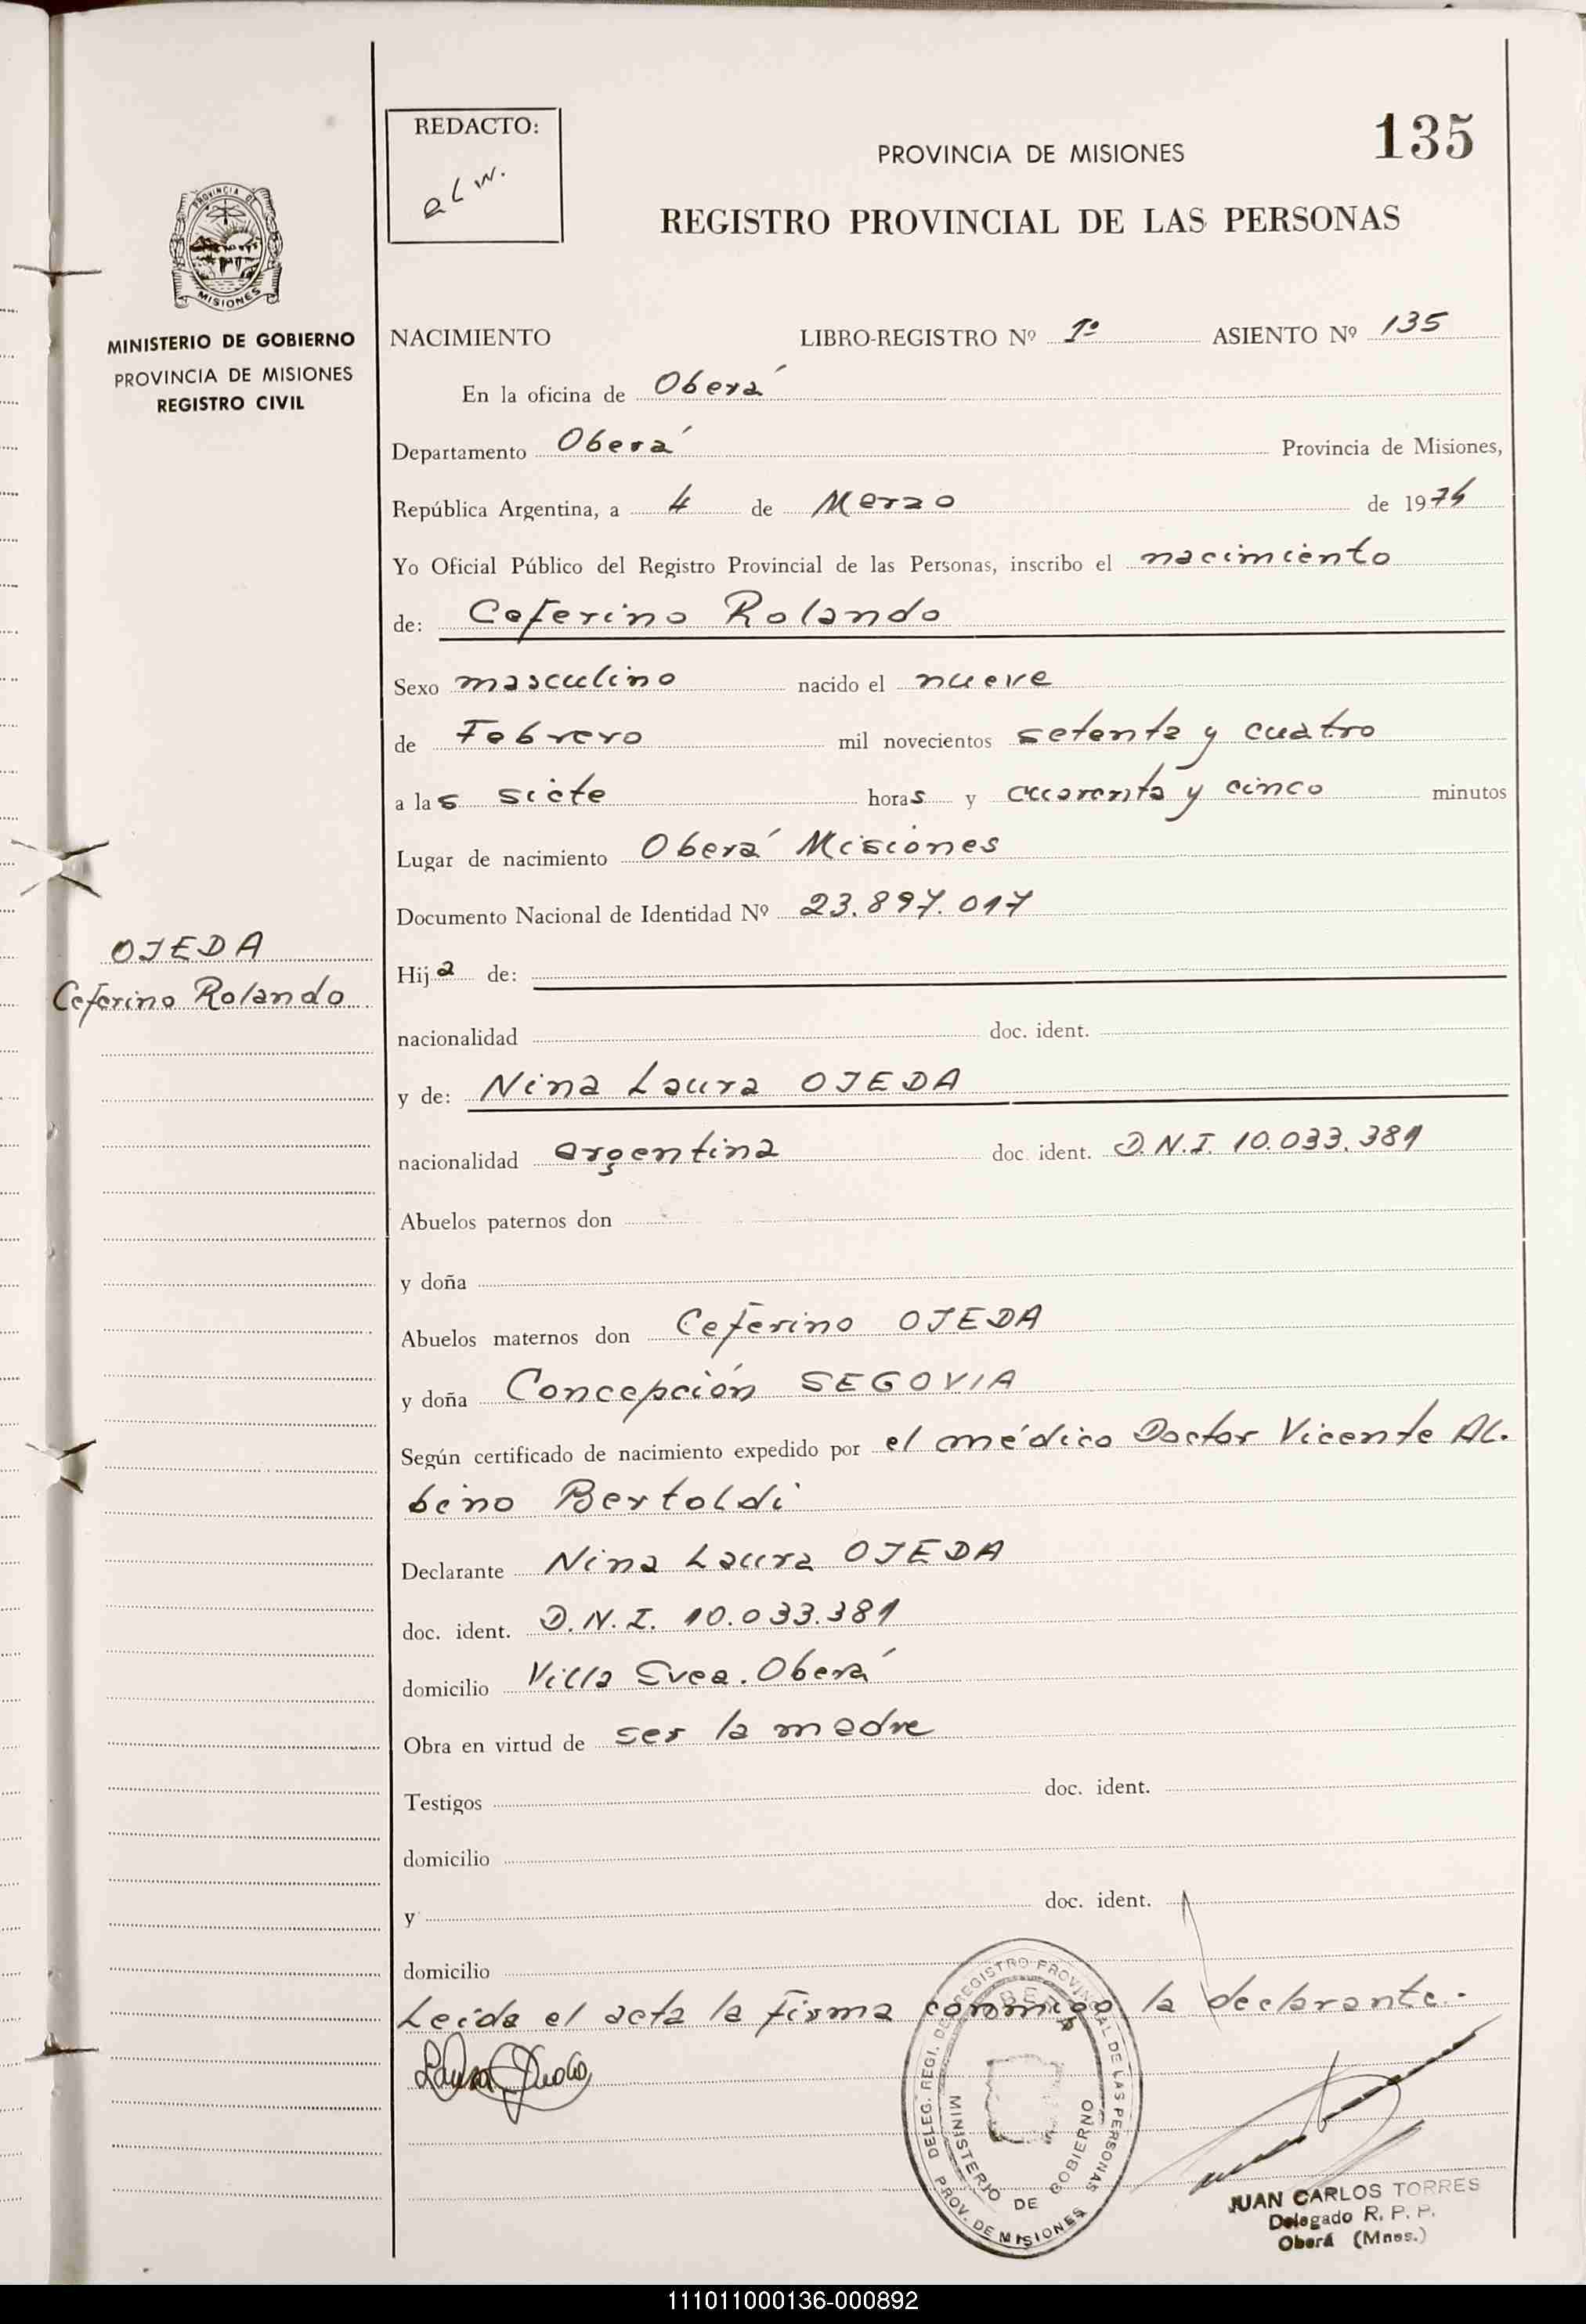 REDACTO:
alw.
PROVINCIA DE MISIONES
135
REGISTRO PROVINCIAL DE LAS PERSONAS
PROVINCIA DE
MISIONES
MINISTERIO DE GOBIERNO
PROVINCIA DE MISIONES
REGISTRO CIVIL
NACIMIENTO LIBRO-REGISTRO Nº 1º ASIENTO Nº 135
En la oficina de Oberá
Departamento Oberá Provincia de Misiones,
República Argentina, a 4 de Marzo de 1974
Yo Oficial Público del Registro Provincial de las Personas, inscribo el nacimiento
de: Ceferino Rolando
Sexo masculino nacido el nueve
de Febrero mil novecientos setenta y cuatro
a las siete horas y cuarenta y cinco minutos
Lugar de nacimiento Oberá Misiones
Documento Nacional de Identidad Nº 23.897.017
OJEDA
Ceferino Rolando
Hija de:
nacionalidad doc. ident.
y de: Nina Laura OJEDA
nacionalidad argentina doc. ident. D.N.I. 10.033.381
Abuelos paternos don
y doña
Abuelos maternos don Ceferino OJEDA
y doña Concepción SEGOVIA
Según certificado de nacimiento expedido por el médico Doctor Vicente Al-
bino Bertoldi
Declarante Nina Laura OJEDA
doc. ident. D.N.I. 10.033.381
domicilio Villa Svea. Oberá
Obra en virtud de ser la madre
Testigos doc. ident.
domicilio
y doc. ident.
domicilio
Leída el acta la firma conmigo la declarante.-
DELEG. REGI. DE REGISTRO PROVINCIAL DE LAS PERSONAS
MINISTERIO DE GOBIERNO
PROV. DE MISIONES
JUAN CARLOS TORRES
Delegado R. P. P.
Oberá (Mnes.)
111011000136-000892